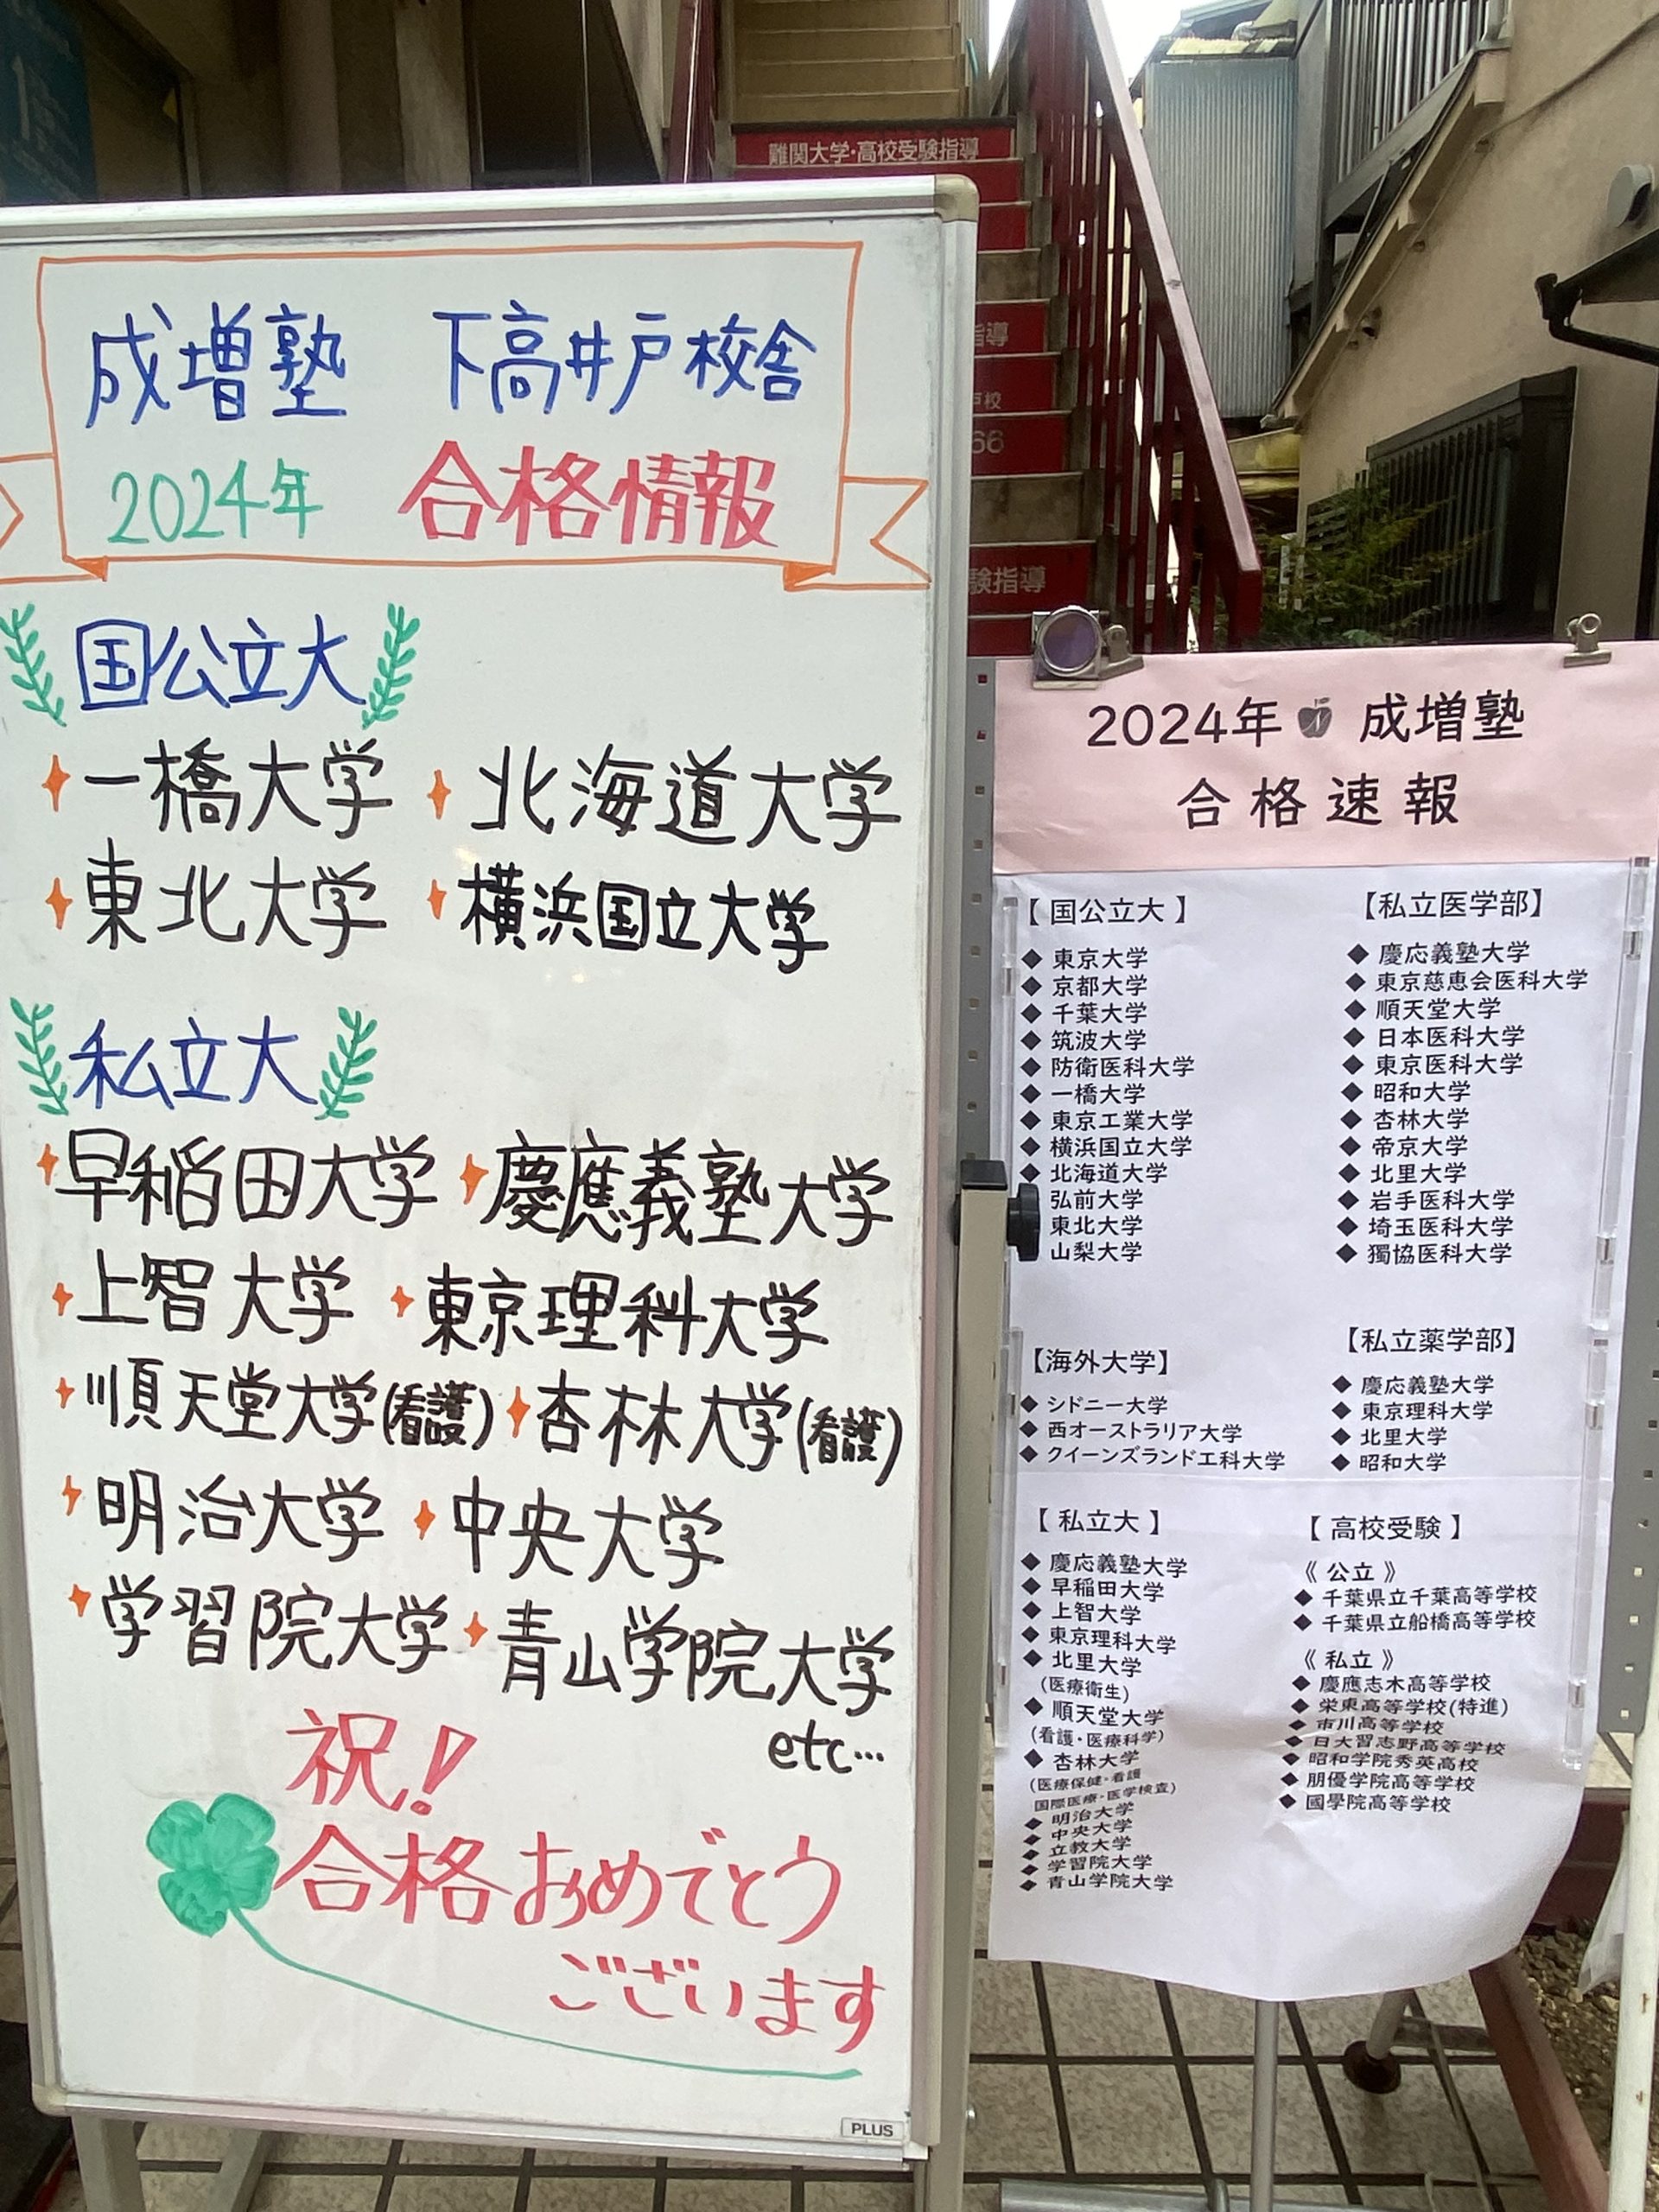 難関大学・高校受験指導
指導
戸校
66
験指導
成増塾 下高井戸校舎
2024年 合格情報
国公立大
一橋大学 北海道大学
東北大学 横浜国立大学
私立大
早稲田大学 慶應義塾大学
上智大学 東京理科大学
順天堂大学(看護) 杏林大学(看護)
明治大学 中央大学
学習院大学 青山学院大学
etc…
祝!
合格おめでとう
ございます
PLUS
2024年 成増塾
合格速報
【国公立大】
◆ 東京大学
◆ 京都大学
◆ 千葉大学
◆ 筑波大学
◆ 防衛医科大学
◆ 一橋大学
◆ 東京工業大学
◆ 横浜国立大学
◆ 北海道大学
弘前大学
東北大学
山梨大学
【海外大学】
◆ シドニー大学
◆ 西オーストラリア大学
◆ クイーンズランド工科大学
【私立大】
◆ 慶応義塾大学
◆ 早稲田大学
◆ 上智大学
◆ 東京理科大学
◆ 北里大学
(医療衛生)
◆ 順天堂大学
(看護・医療科学)
◆ 杏林大学
(医療保健・看護
国際医療・医学検査)
◆ 明治大学
◆ 中央大学
◆ 立教大学
◆ 学習院大学
◆ 青山学院大学
【私立医学部】
◆ 慶応義塾大学
◆ 東京慈恵会医科大学
◆ 順天堂大学
◆ 日本医科大学
◆ 東京医科大学
◆ 昭和大学
◆ 杏林大学
◆ 帝京大学
◆ 北里大学
◆ 岩手医科大学
◆ 埼玉医科大学
◆ 獨協医科大学
【私立薬学部】
◆ 慶応義塾大学
◆ 東京理科大学
◆ 北里大学
◆ 昭和大学
【高校受験】
《公立》
◆ 千葉県立千葉高等学校
◆ 千葉県立船橋高等学校
《私立》
◆ 慶應志木高等学校
◆ 栄東高等学校(特進)
◆ 市川高等学校
◆ 日大習志野高等学校
◆ 昭和学院秀英高校
◆ 朋優学院高等学校
◆ 國學院高等学校